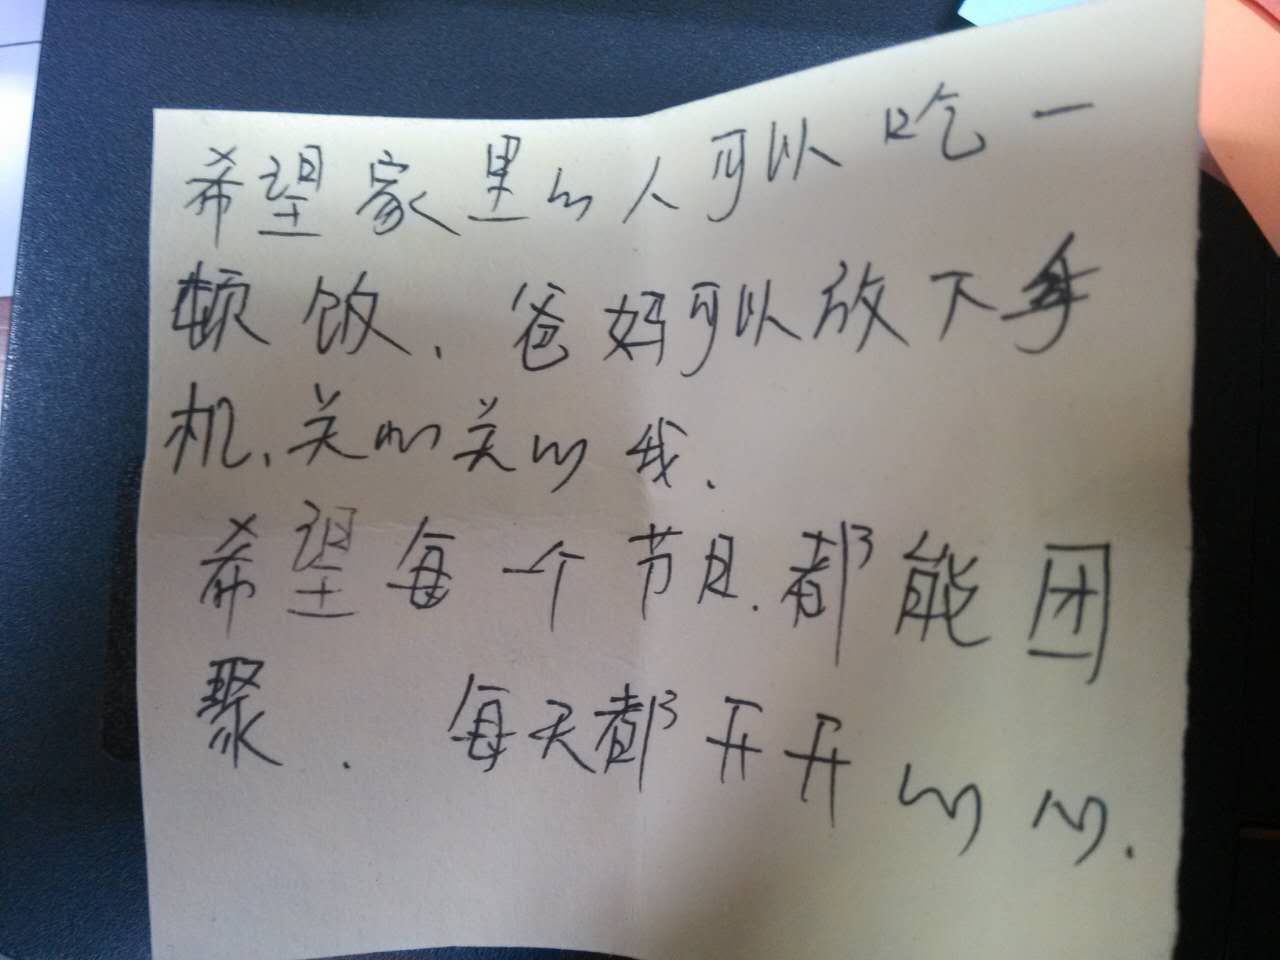 希望家里的人可以吃一
顿饭、爸妈可以放下手
机、关心关心我.
希望每一个节日.都能团
聚. 每天都开开心心.